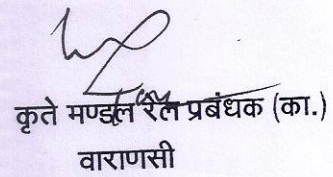 कृते मण्डल रेल प्रबंधक (का.)
वाराणसी